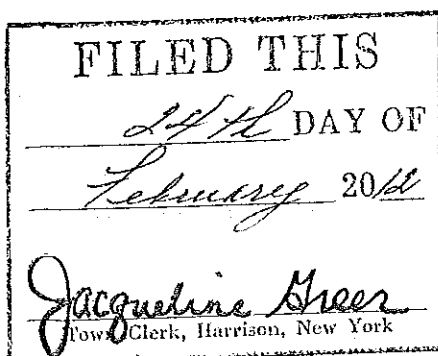 FILED THIS
24th DAY OF
February 2012
Jacqueline Greer
Town Clerk, Harrison, New York